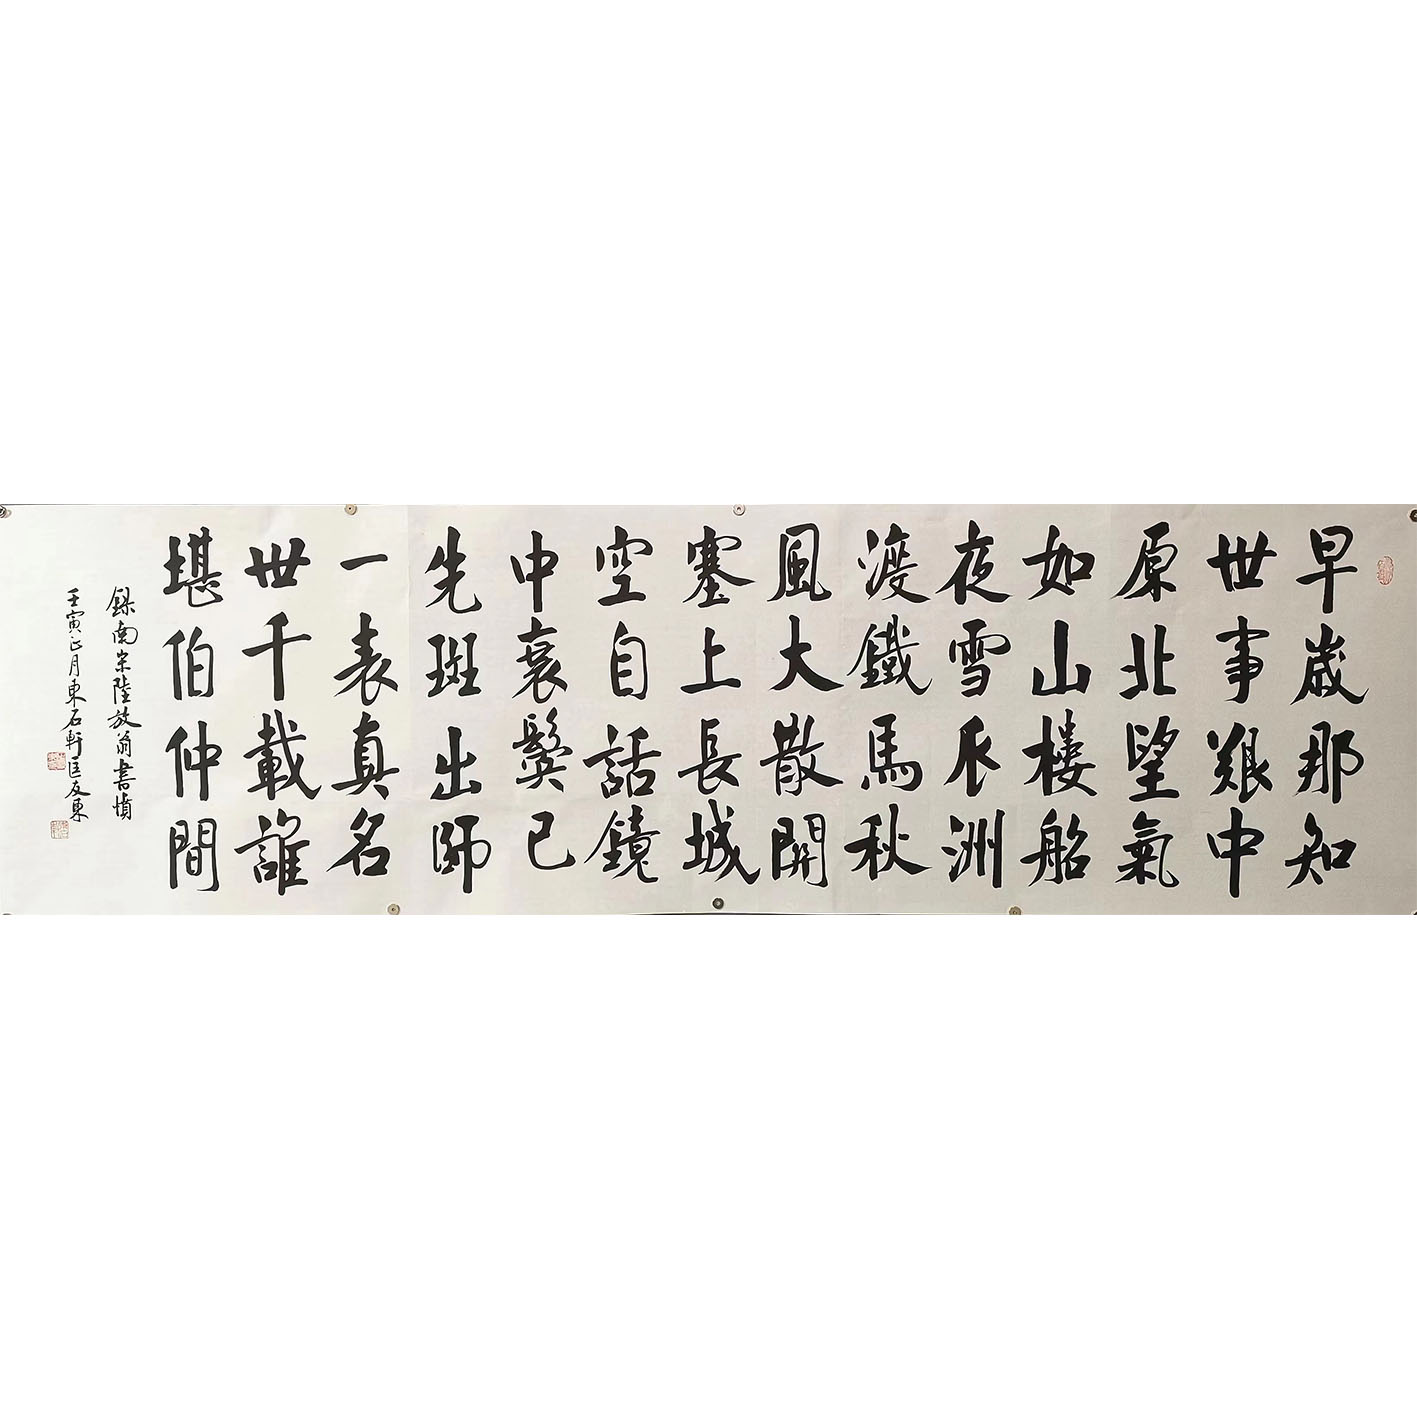 早歲那知
世事艱中
原北望氣
如山樓船
夜雪瓜洲
渡鐵馬秋
風大散開
塞上長城
空自話鏡
中衰鬢已
先斑出師
一表真名
世千載誰
堪伯仲間
錄南宋陸放翁書憤
壬寅正月東石軒匡友東